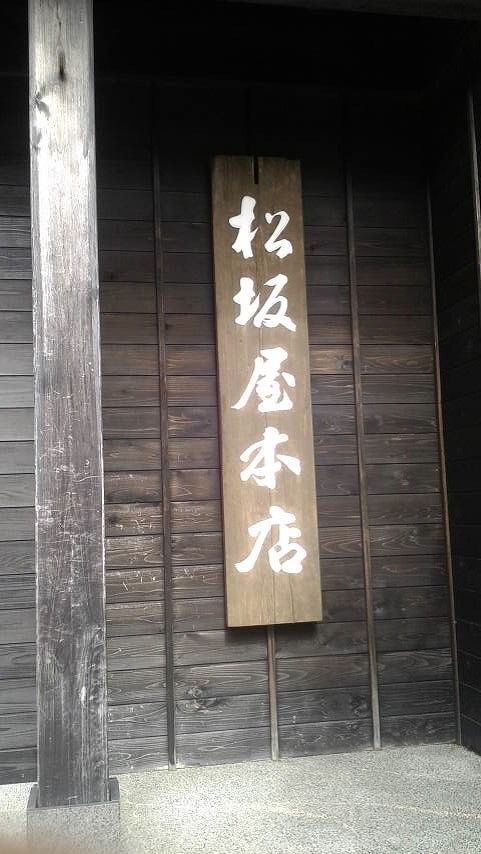 松坂屋本店